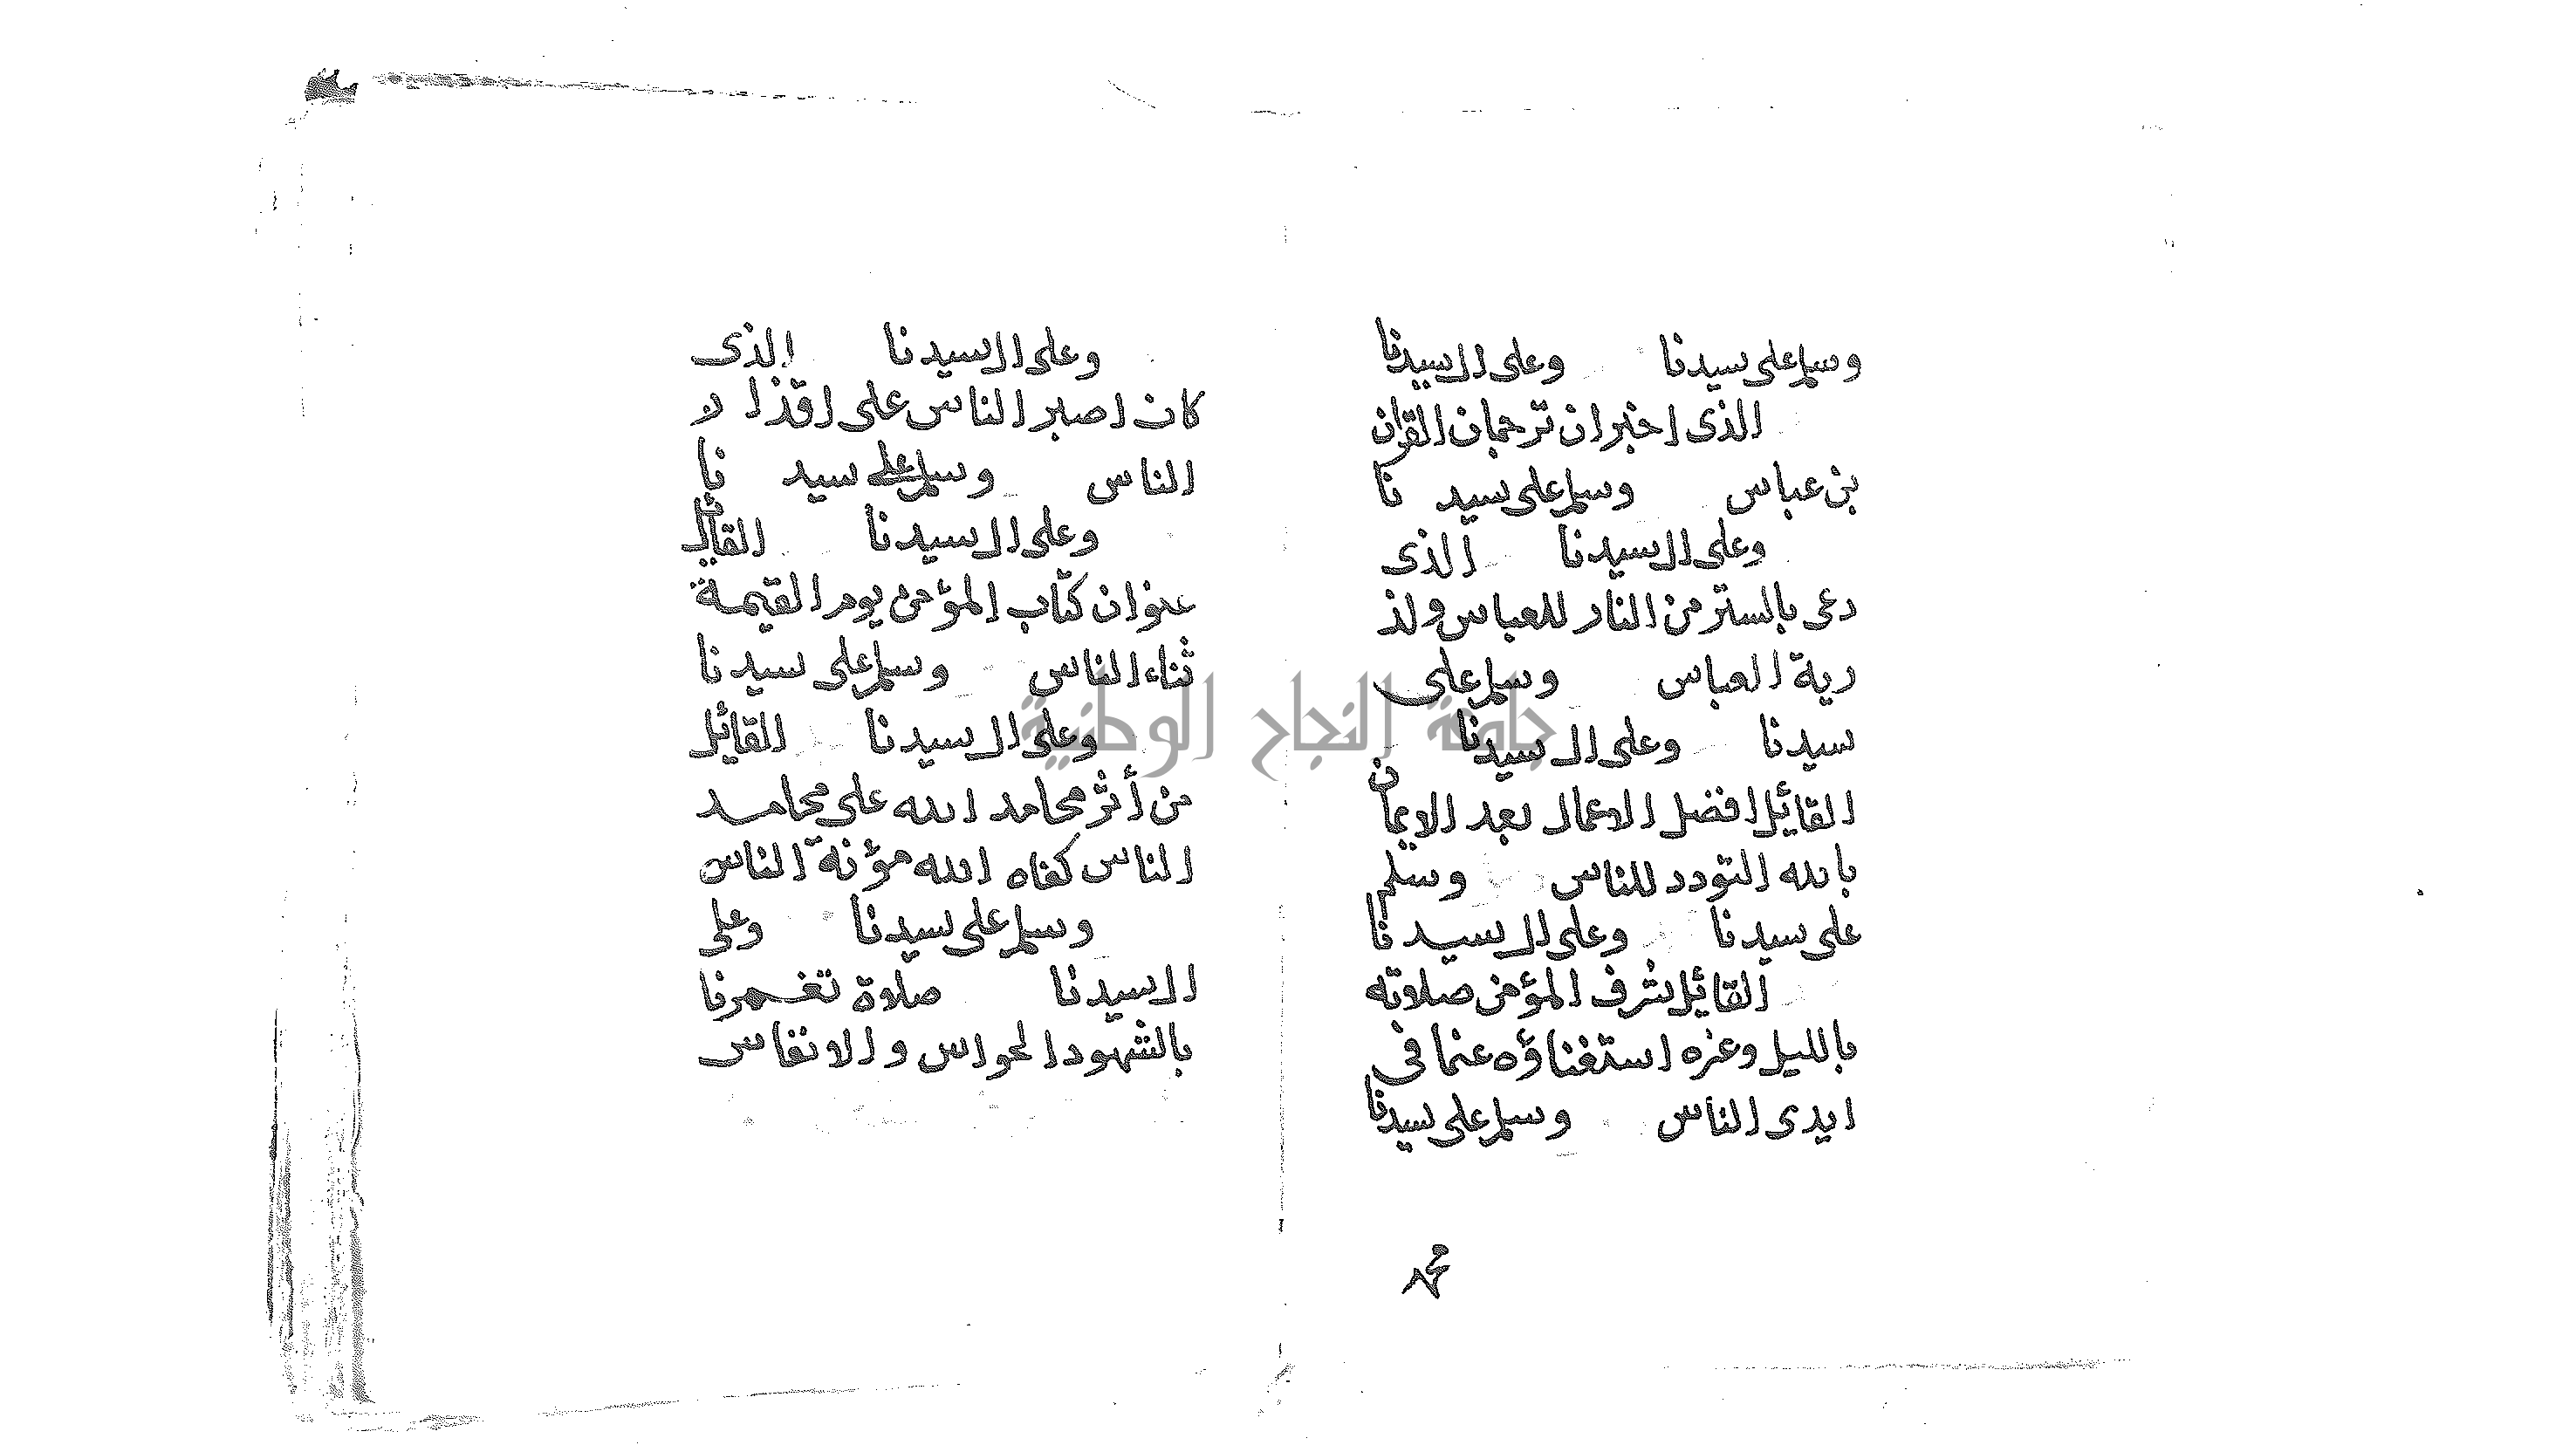 وسلم على سيدنا وعلى ال سيدنا
الذى اخبر ان ترجمان القران
بن عباس وسلم على سيد نا
وعلى ال سيدنا الذى
دعى بالستر من النار للعباس ولذ
رية العباس وسلم على
سيدنا وعلى ال سيدنا
القائل افضل الاعمال بعد الايمان
بالله التودد للناس وسلم
على سيدنا وعلى ال سيد نا
القائل شرف المؤمن صلاته
بالليل وعزه استغناؤه عنما فى
ايدى الناس وسلم على سيدنا
وعلى ال سيدنا الذى
كان اصبر الناس على اقذا ر
الناس وسلم على سيد نا
وعلى ال سيدنا القائل
عنوان كتاب المؤمن يوم القيمة
ثناء الناس وسلم على سيدنا
وعلى ال سيدنا القائل
من أثر محامد الله على محامد
الناس كفاه الله مؤنة الناس
وسلم على سيدنا وعلى
ال سيدنا صلاة تغمرنا
بالشهود الحواس والانفاس
جامعة النجاح الوطنية